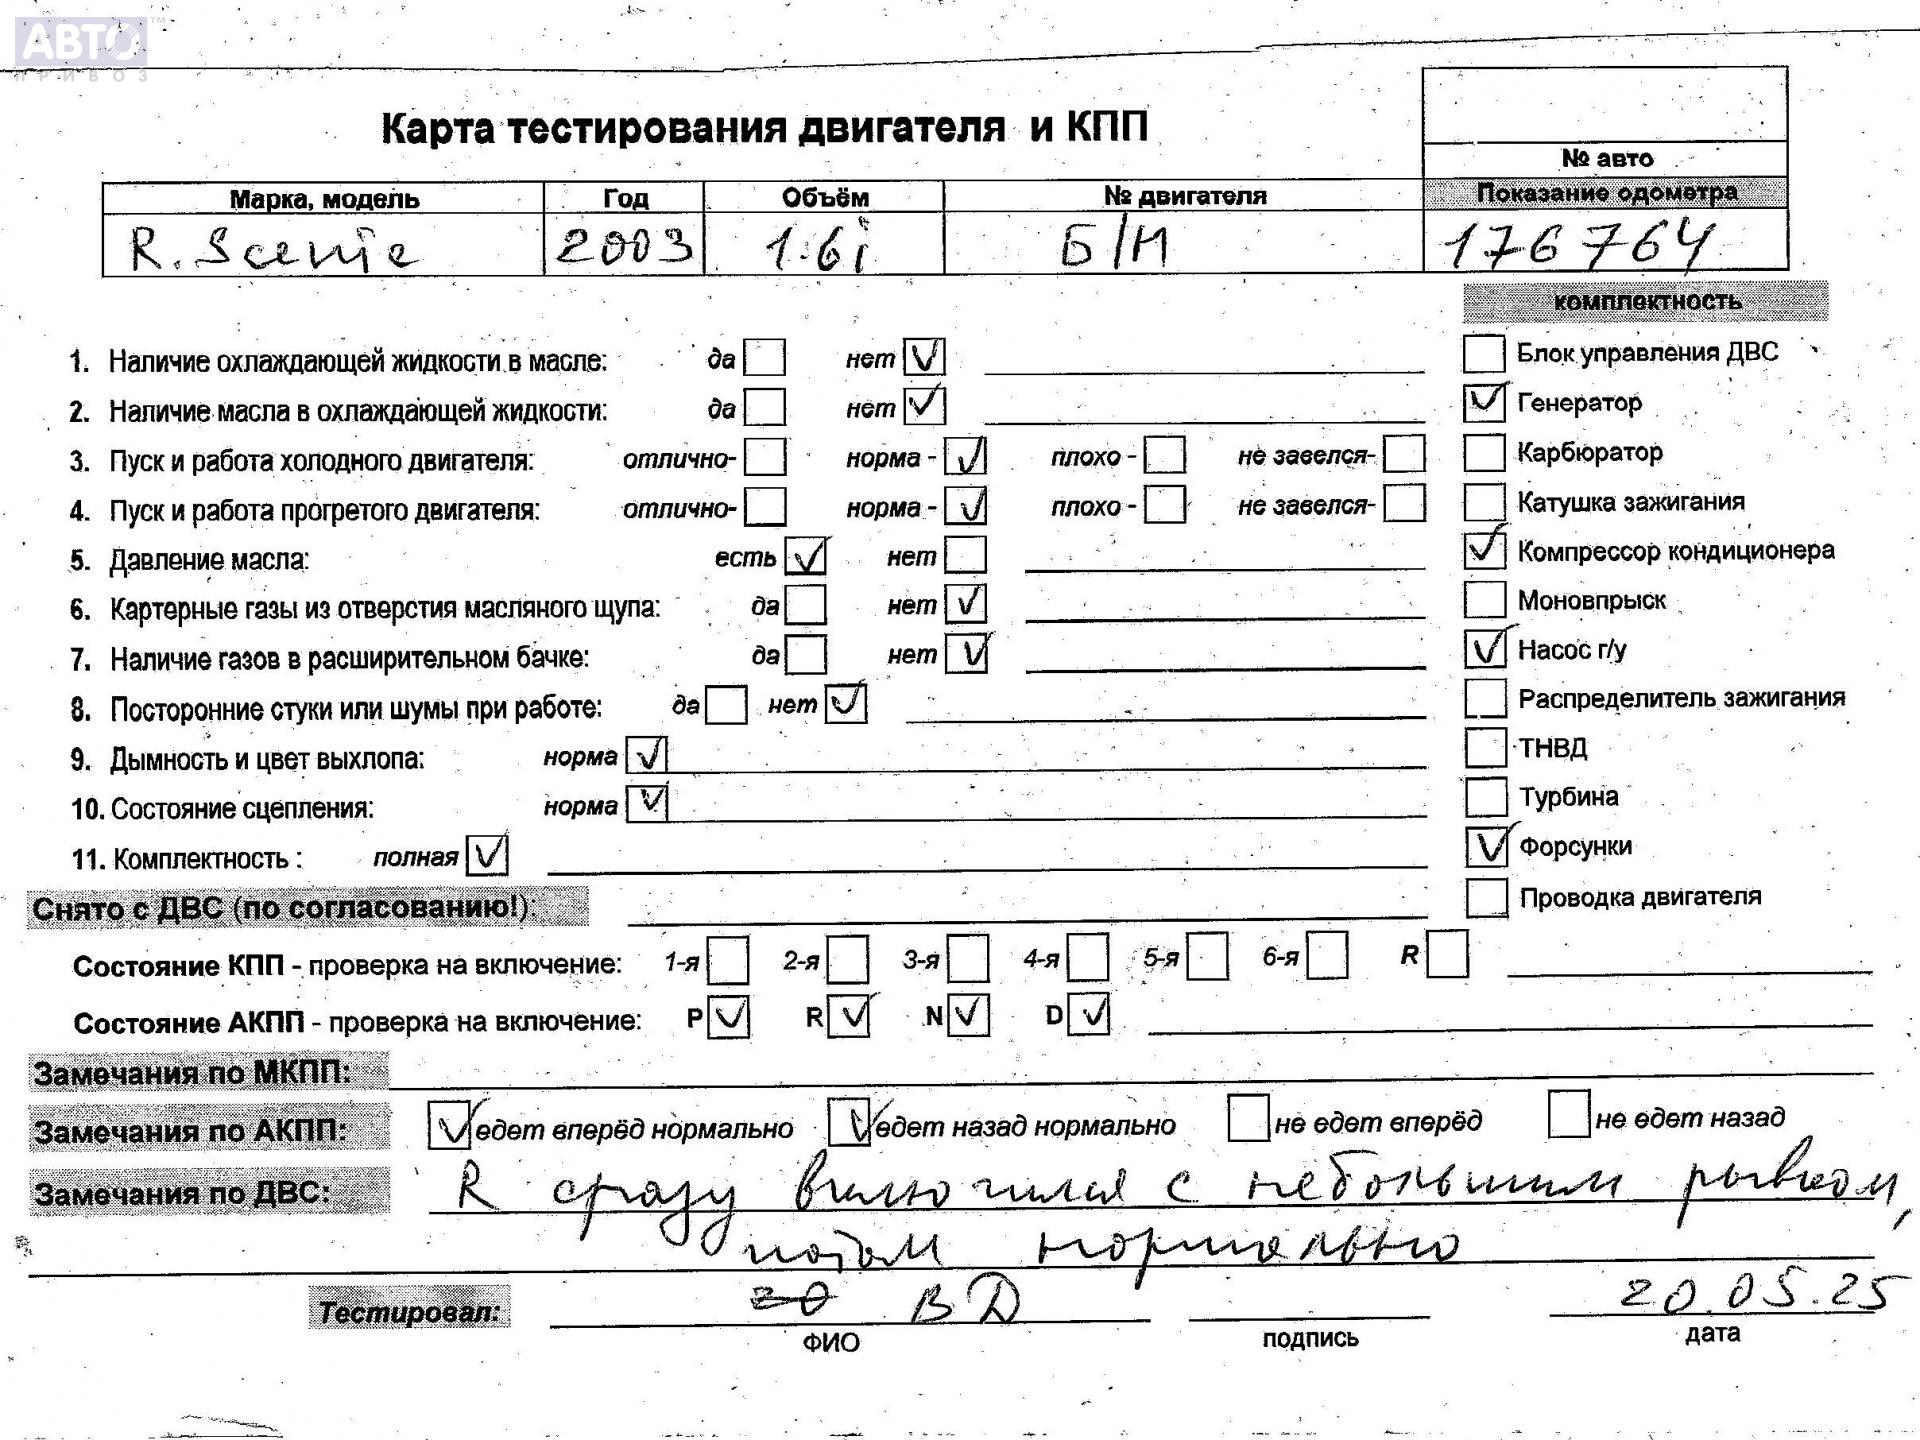 АВТО™
ПРИВОЗ
Карта тестирования двигателя и КПП
№ авто
Марка, модель Год Объём № двигателя Показание одометра
R. Scenic 2003 1.6i Б/Н 176764
комплектность
1. Наличие охлаждающей жидкости в масле: да нет ✓ Блок управления ДВС
2. Наличие масла в охлаждающей жидкости: да нет ✓ ✓ Генератор
3. Пуск и работа холодного двигателя: отлично- норма - ✓ плохо - не завелся- Карбюратор
4. Пуск и работа прогретого двигателя: отлично- норма - ✓ плохо - не завелся- Катушка зажигания
5. Давление масла: есть ✓ нет ✓ Компрессор кондиционера
6. Картерные газы из отверстия масляного щупа: да нет ✓ Моновпрыск
7. Наличие газов в расширительном бачке: да нет ✓ ✓ Насос г/у
8. Посторонние стуки или шумы при работе: да нет ✓ Распределитель зажигания
9. Дымность и цвет выхлопа: норма ✓ ТНВД
10. Состояние сцепления: норма ✓ Турбина
11. Комплектность : полная ✓ ✓ Форсунки
Снято с ДВС (по согласованию!): Проводка двигателя
Состояние КПП - проверка на включение: 1-я 2-я 3-я 4-я 5-я 6-я R
Состояние АКПП - проверка на включение: P ✓ R ✓ N ✓ D ✓
Замечания по МКПП:
Замечания по АКПП: ✓ едет вперёд нормально ✓ едет назад нормально не едет вперёд не едет назад
Замечания по ДВС: R сразу включился с небольшим рывком,
потом нормально
Тестировал: ВД 20.05.25
ФИО подпись дата